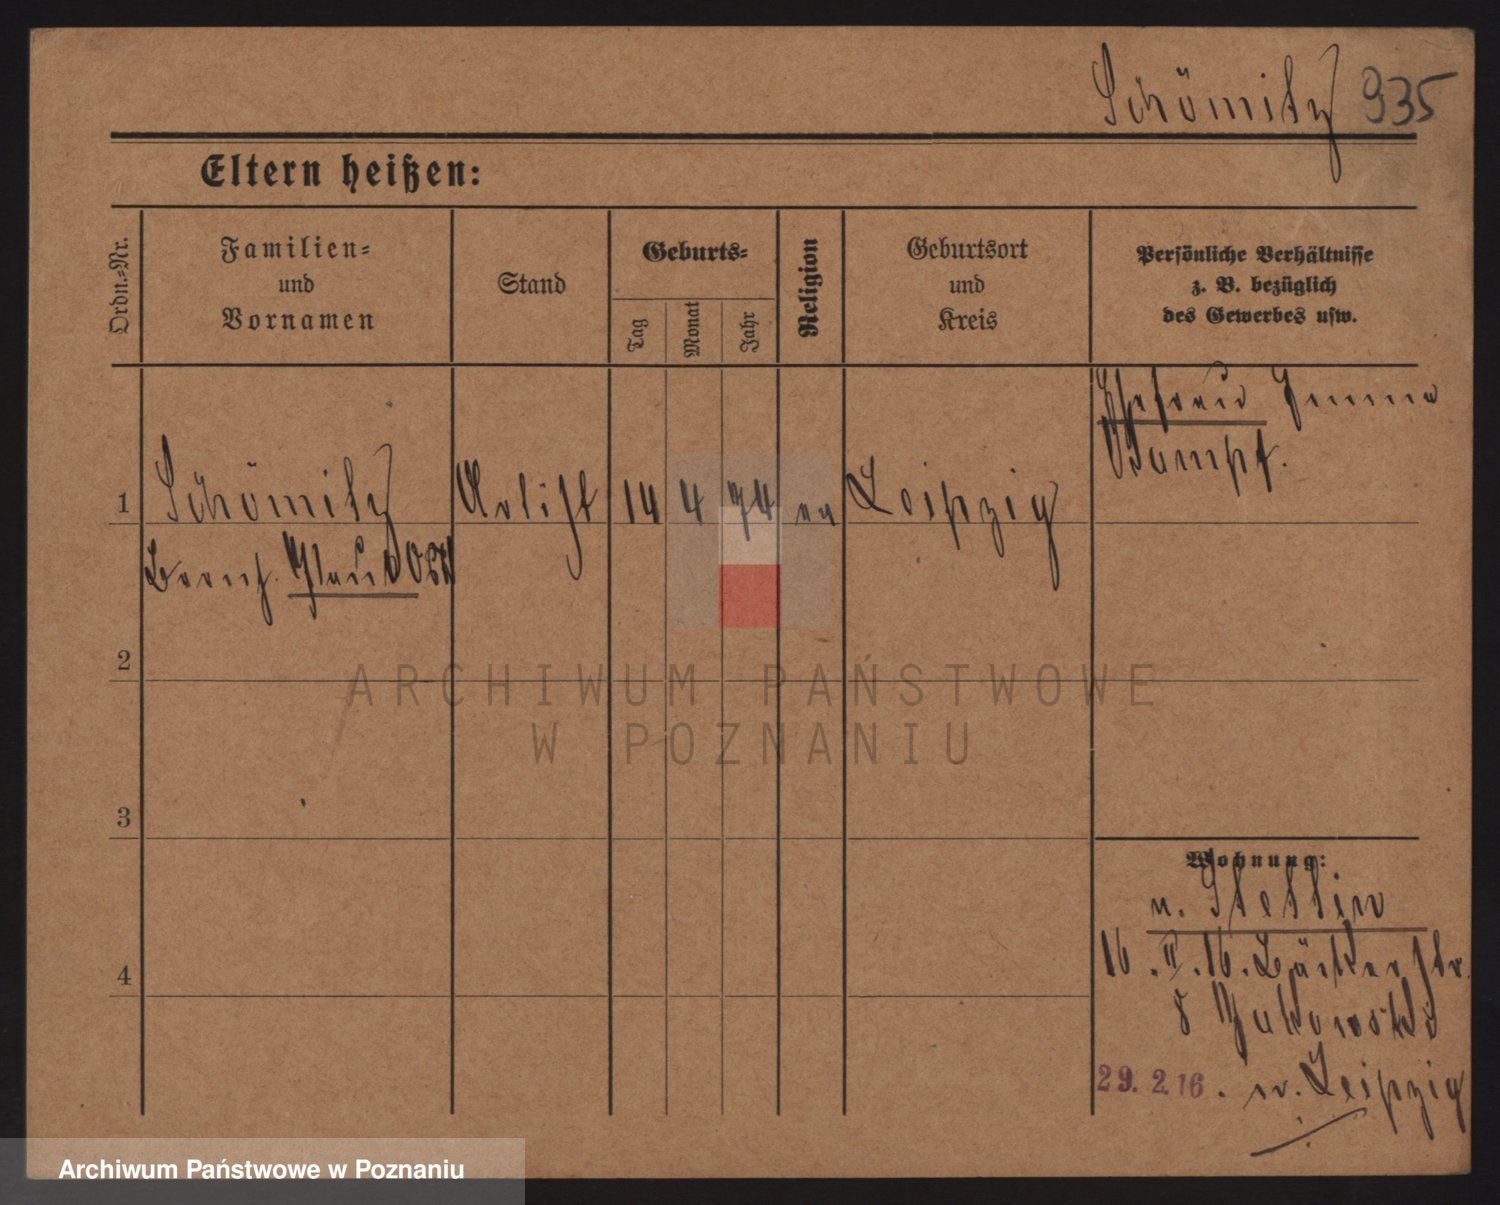 Schömitz 935
Eltern heißen:
Ordn.-Nr.
Familien-
und
Vornamen
Stand
Geburts-
Tag
Monat
Jahr
Religion
Geburtsort
und
Kreis
Persönliche Verhältnisse
z. B. bezüglich
des Gewerbes usw.
Ehefrau
1 Schömitz Artist 14 4 74 ev Leipzig
2
3
4
Wohnung:
v. Stettin
16. II. 16. Bäckerstr.
8
29. 2. 16. n. Leipzig
ARCHIWUM PAŃSTWOWE
W POZNANIU
Archiwum Państwowe w Poznaniu